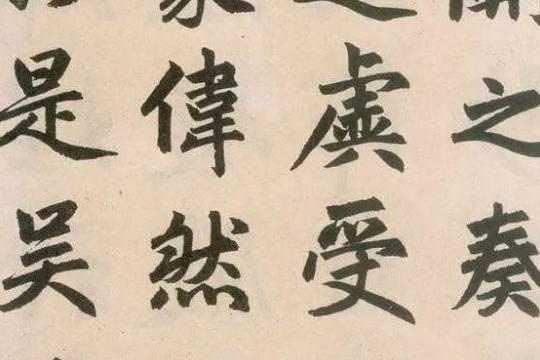 之奏
虛受
偉然
是吴